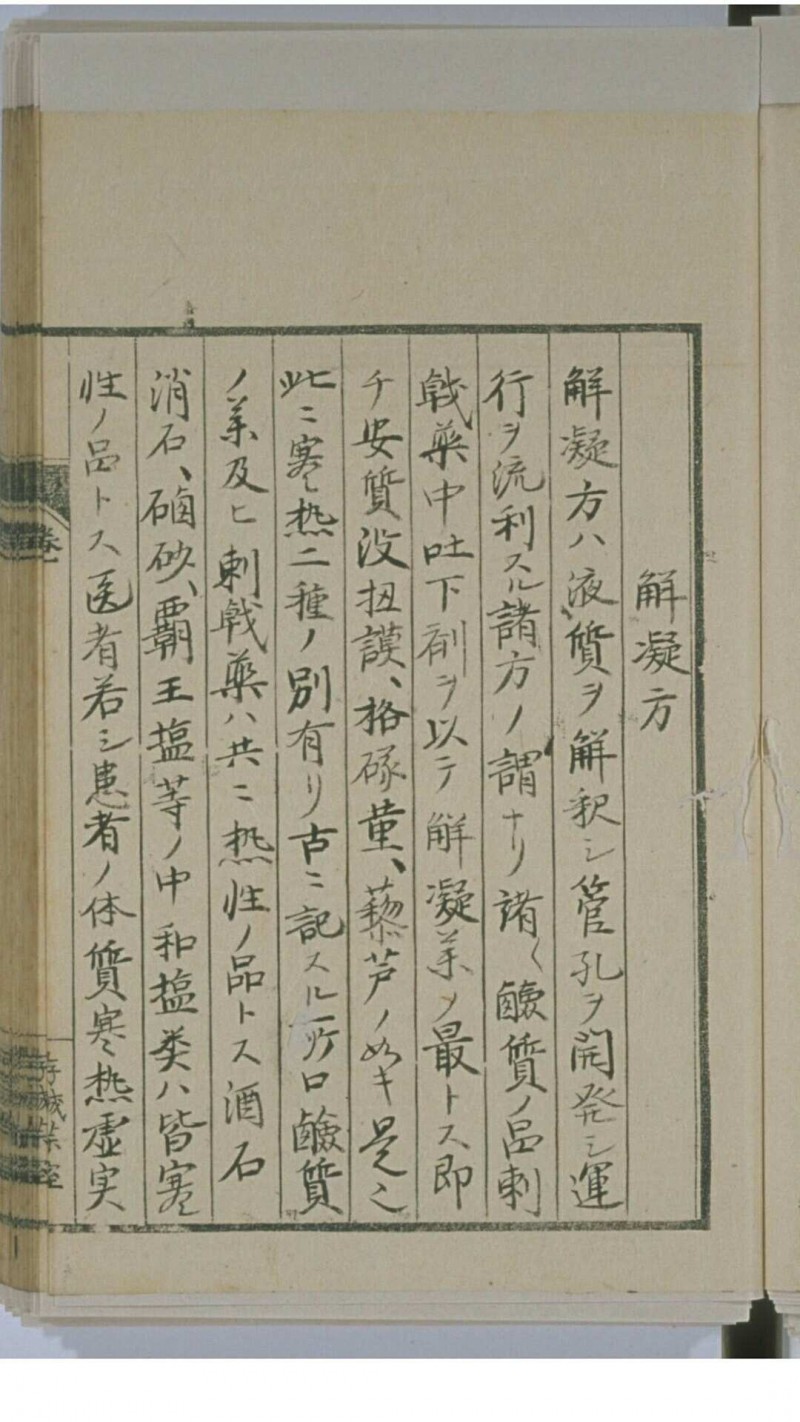 解凝方
解凝方ハ液質ヲ解釈シ管孔ヲ開発シ運
行ヲ流利スル諸方ノ謂ナリ諸〱鹼質ノ品刺
戟薬中吐下剤ヲ以テ解凝薬ノ最トス即
チ安質没扭謨、格碌菫、藜芦ノ如キ是也
此ニ寒熱二種ノ別有リ古ニ記スル所ロ鹼質
ノ薬及ヒ刺戟薬ハ共ニ熱性ノ品トス酒石
消石、磠砂、覇王塩等ノ中和塩类ハ皆寒
性ノ品トス医者若シ患者ノ体質寒熱虚実
巻